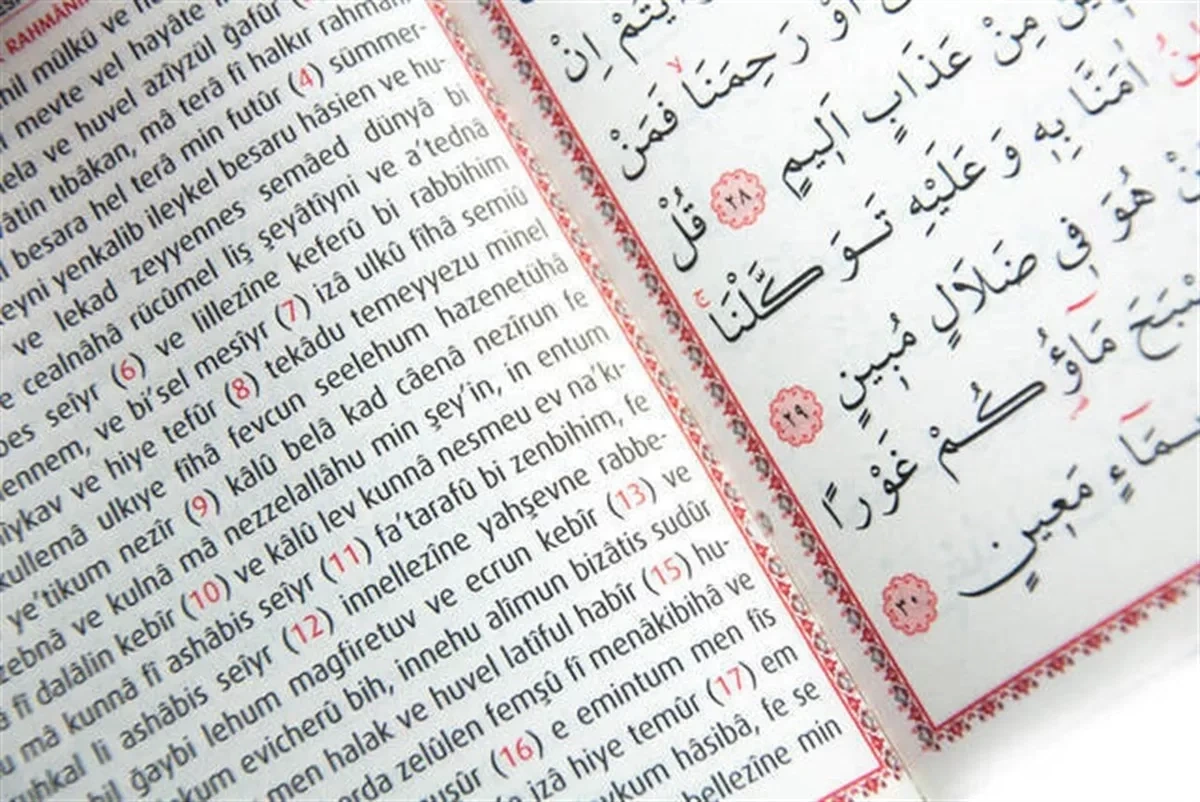 RAHMÂNİ
mülkü ve
mevte vel hayâte
ve huvel azîyzül ğafûr (
tıbâkan, mâ terâ fî halkır rahmâni
besara hel terâ min futûr (4) sümmer-
yenkalib ileykel besaru hâsien ve hu-
ve lekad zeyyennes semâed dünyâ bi
cealnâhâ rücûmel liş şeyâtîyni ve a'tednâ
seîyr (6) ve lillezîne keferû bi rabbihim
ennem, ve bi'sel mesîyr (7) izâ ulkû fîhâ semiû
îykav ve hiye tefûr (8) tekâdu temeyyezu minel
kullemâ ulkıye fîhâ fevcun seelehum hazenetühâ
ye'tikum nezîr (9) kâlû belâ kad câenâ nezîrun fe
zebnâ ve kulnâ mâ nezzelallâhu min şey'in, in entum
fî dalâlin kebîr (10) ve kâlû lev kunnâ nesmeu ev na'kı-
mâ kunnâ fî ashâbis seîyr (11) fa'tarafû bi zenbihim, fe
uhkal li ashâbis seîyr (12) innellezîne yahşevne rabbe-
bil ğaybi lehum magfiretuv ve ecrun kebîr (13) ve
kum evicherû bih, innehu alîmun bizâtis sudûr
men halak ve huvel latîful habîr (15) hu-
arda zelûlen femşû fî menâkibihâ ve
uşûr (16) e emintum men fîs
izâ hiye temûr (17) em
eykum hâsibâ, fe se
bellezîne min
اِنْ
اَوْ رَحِمَنَا فَمَنْ
مِنْ عَذَابٍ اَلِيمٍ ﴿٢٨﴾ قُلْ
اٰمَنَّا بِهٖ وَعَلَيْهِ تَوَكَّلْنَا
هُوَ فٖي ضَلَالٍ مُبٖينٍ ﴿٢٩﴾
مَٓاؤُكُمْ غَوْرًا
مَعٖينٍ ﴿٣٠﴾